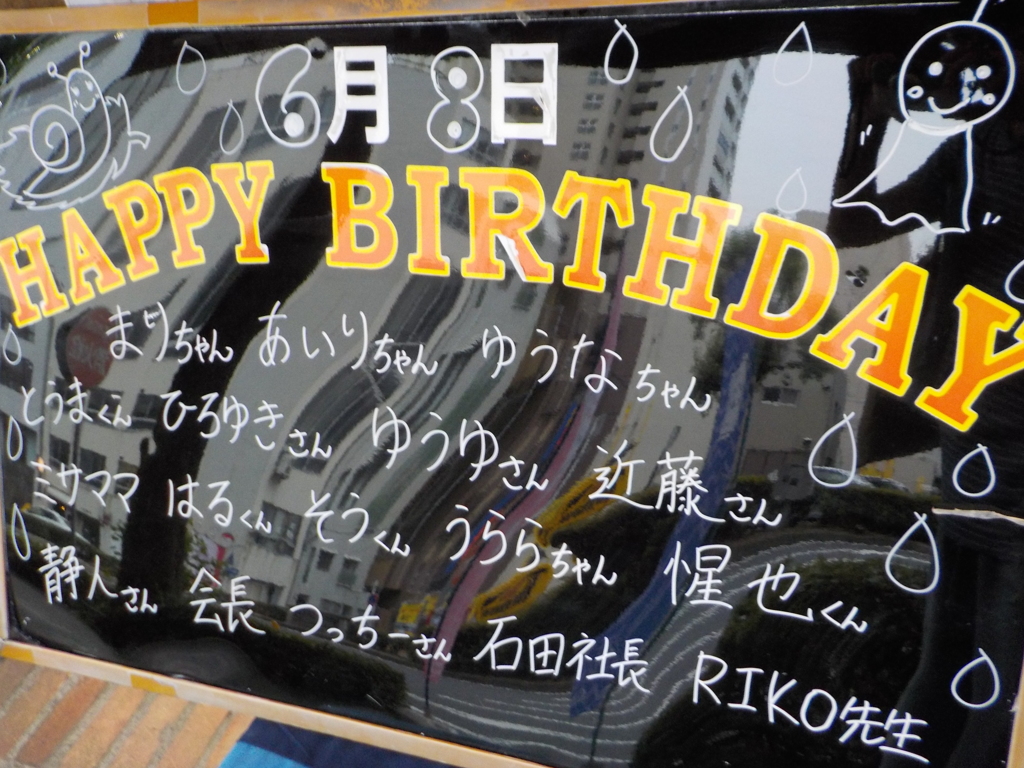 6月8日
HAPPY BIRTHDAY
まりちゃん あいりちゃん ゆうなちゃん
とうまくん ひろゆきさん ゆうゆさん 近藤さん
ミサママ はるくん そうくん うららちゃん 惺也くん
静人さん 会長 つっちーさん 石田社長 RIKO先生